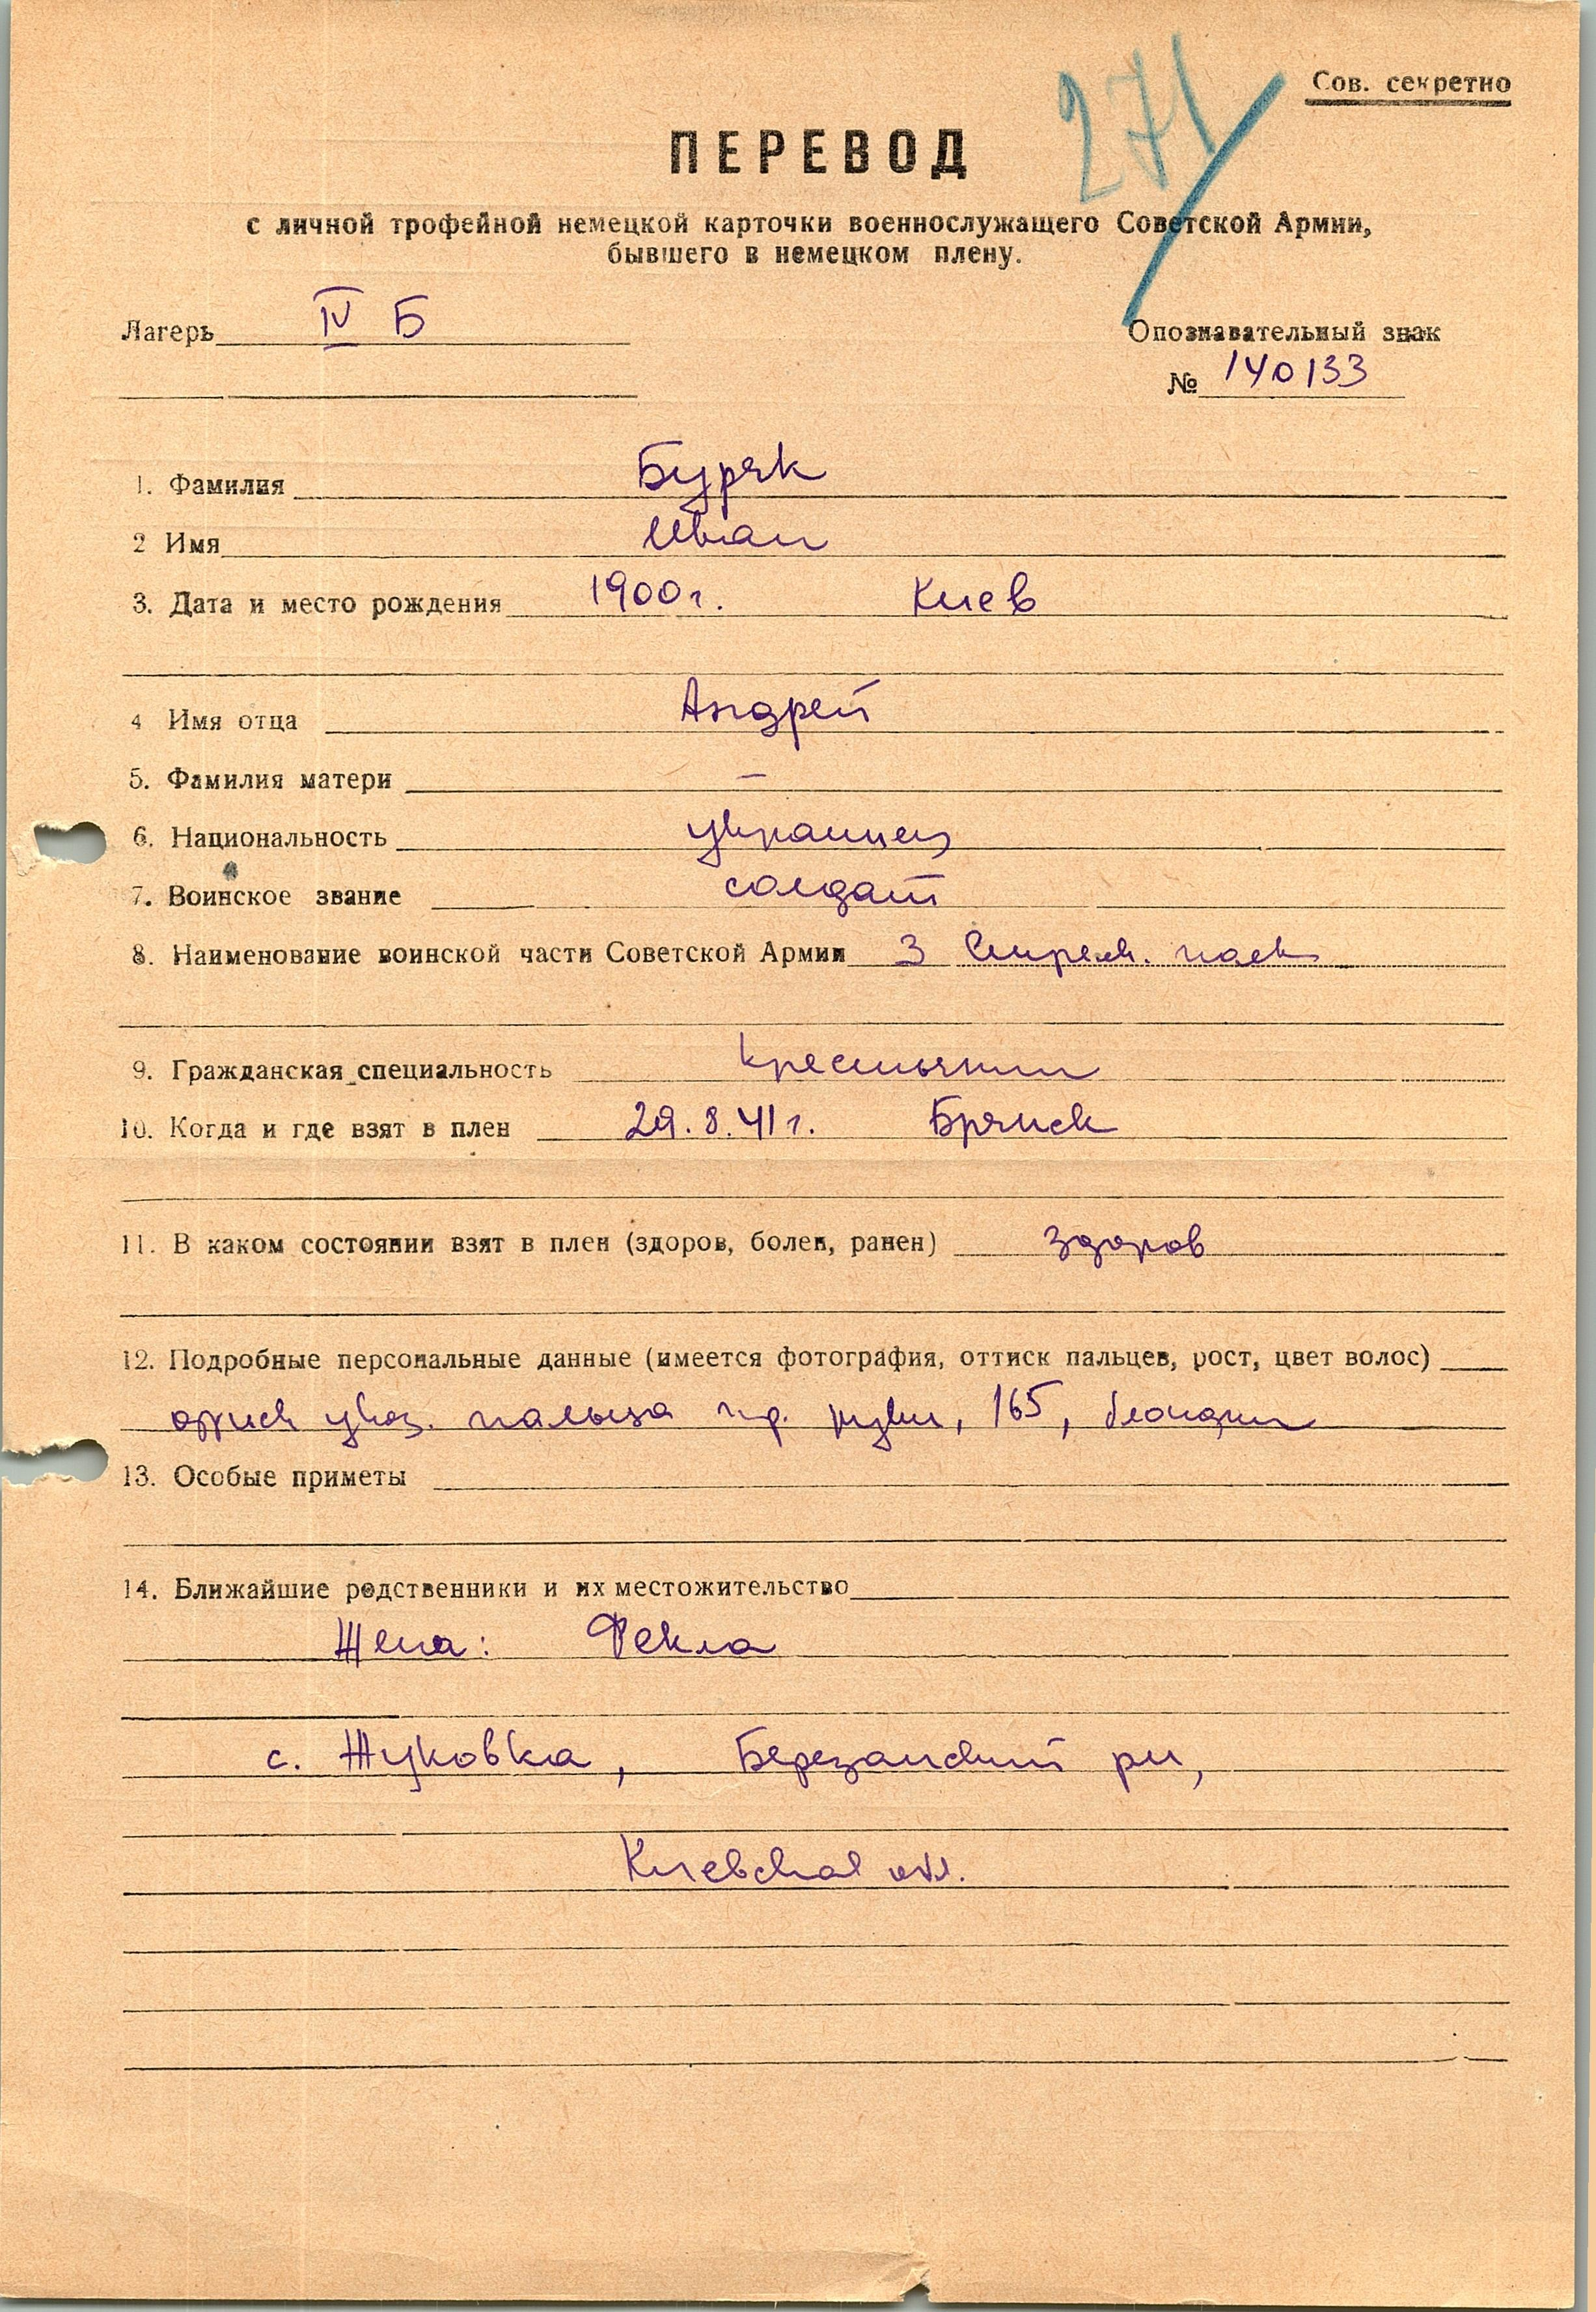 271
Сов. секретно
ПЕРЕВОД
с личной трофейной немецкой карточки военнослужащего Советской Армии,
бывшего в немецком плену.
Лагерь IV Б
Опознавательный знак
№ 140133
1. Фамилия Буряк
2 Имя Иван
3. Дата и место рождения 1900г. Киев
4 Имя отца Андрей
5. Фамилия матери –
6. Национальность украинец
7. Воинское звание солдат
8. Наименование воинской части Советской Армии 3 Стрелк. полк
9. Гражданская специальность крестьянин
10. Когда и где взят в плен 29.8.41г. Брянск
11. В каком состоянии взят в плен (здоров, болен, ранен) здоров
12. Подробные персональные данные (имеется фотография, оттиск пальцев, рост, цвет волос)
указ. пальца пр. руки, 165, блондин
13. Особые приметы
14. Ближайшие родственники и их местожительство
Жена: Фекла
с. Жуковка, Березанский рн,
Киевская обл.